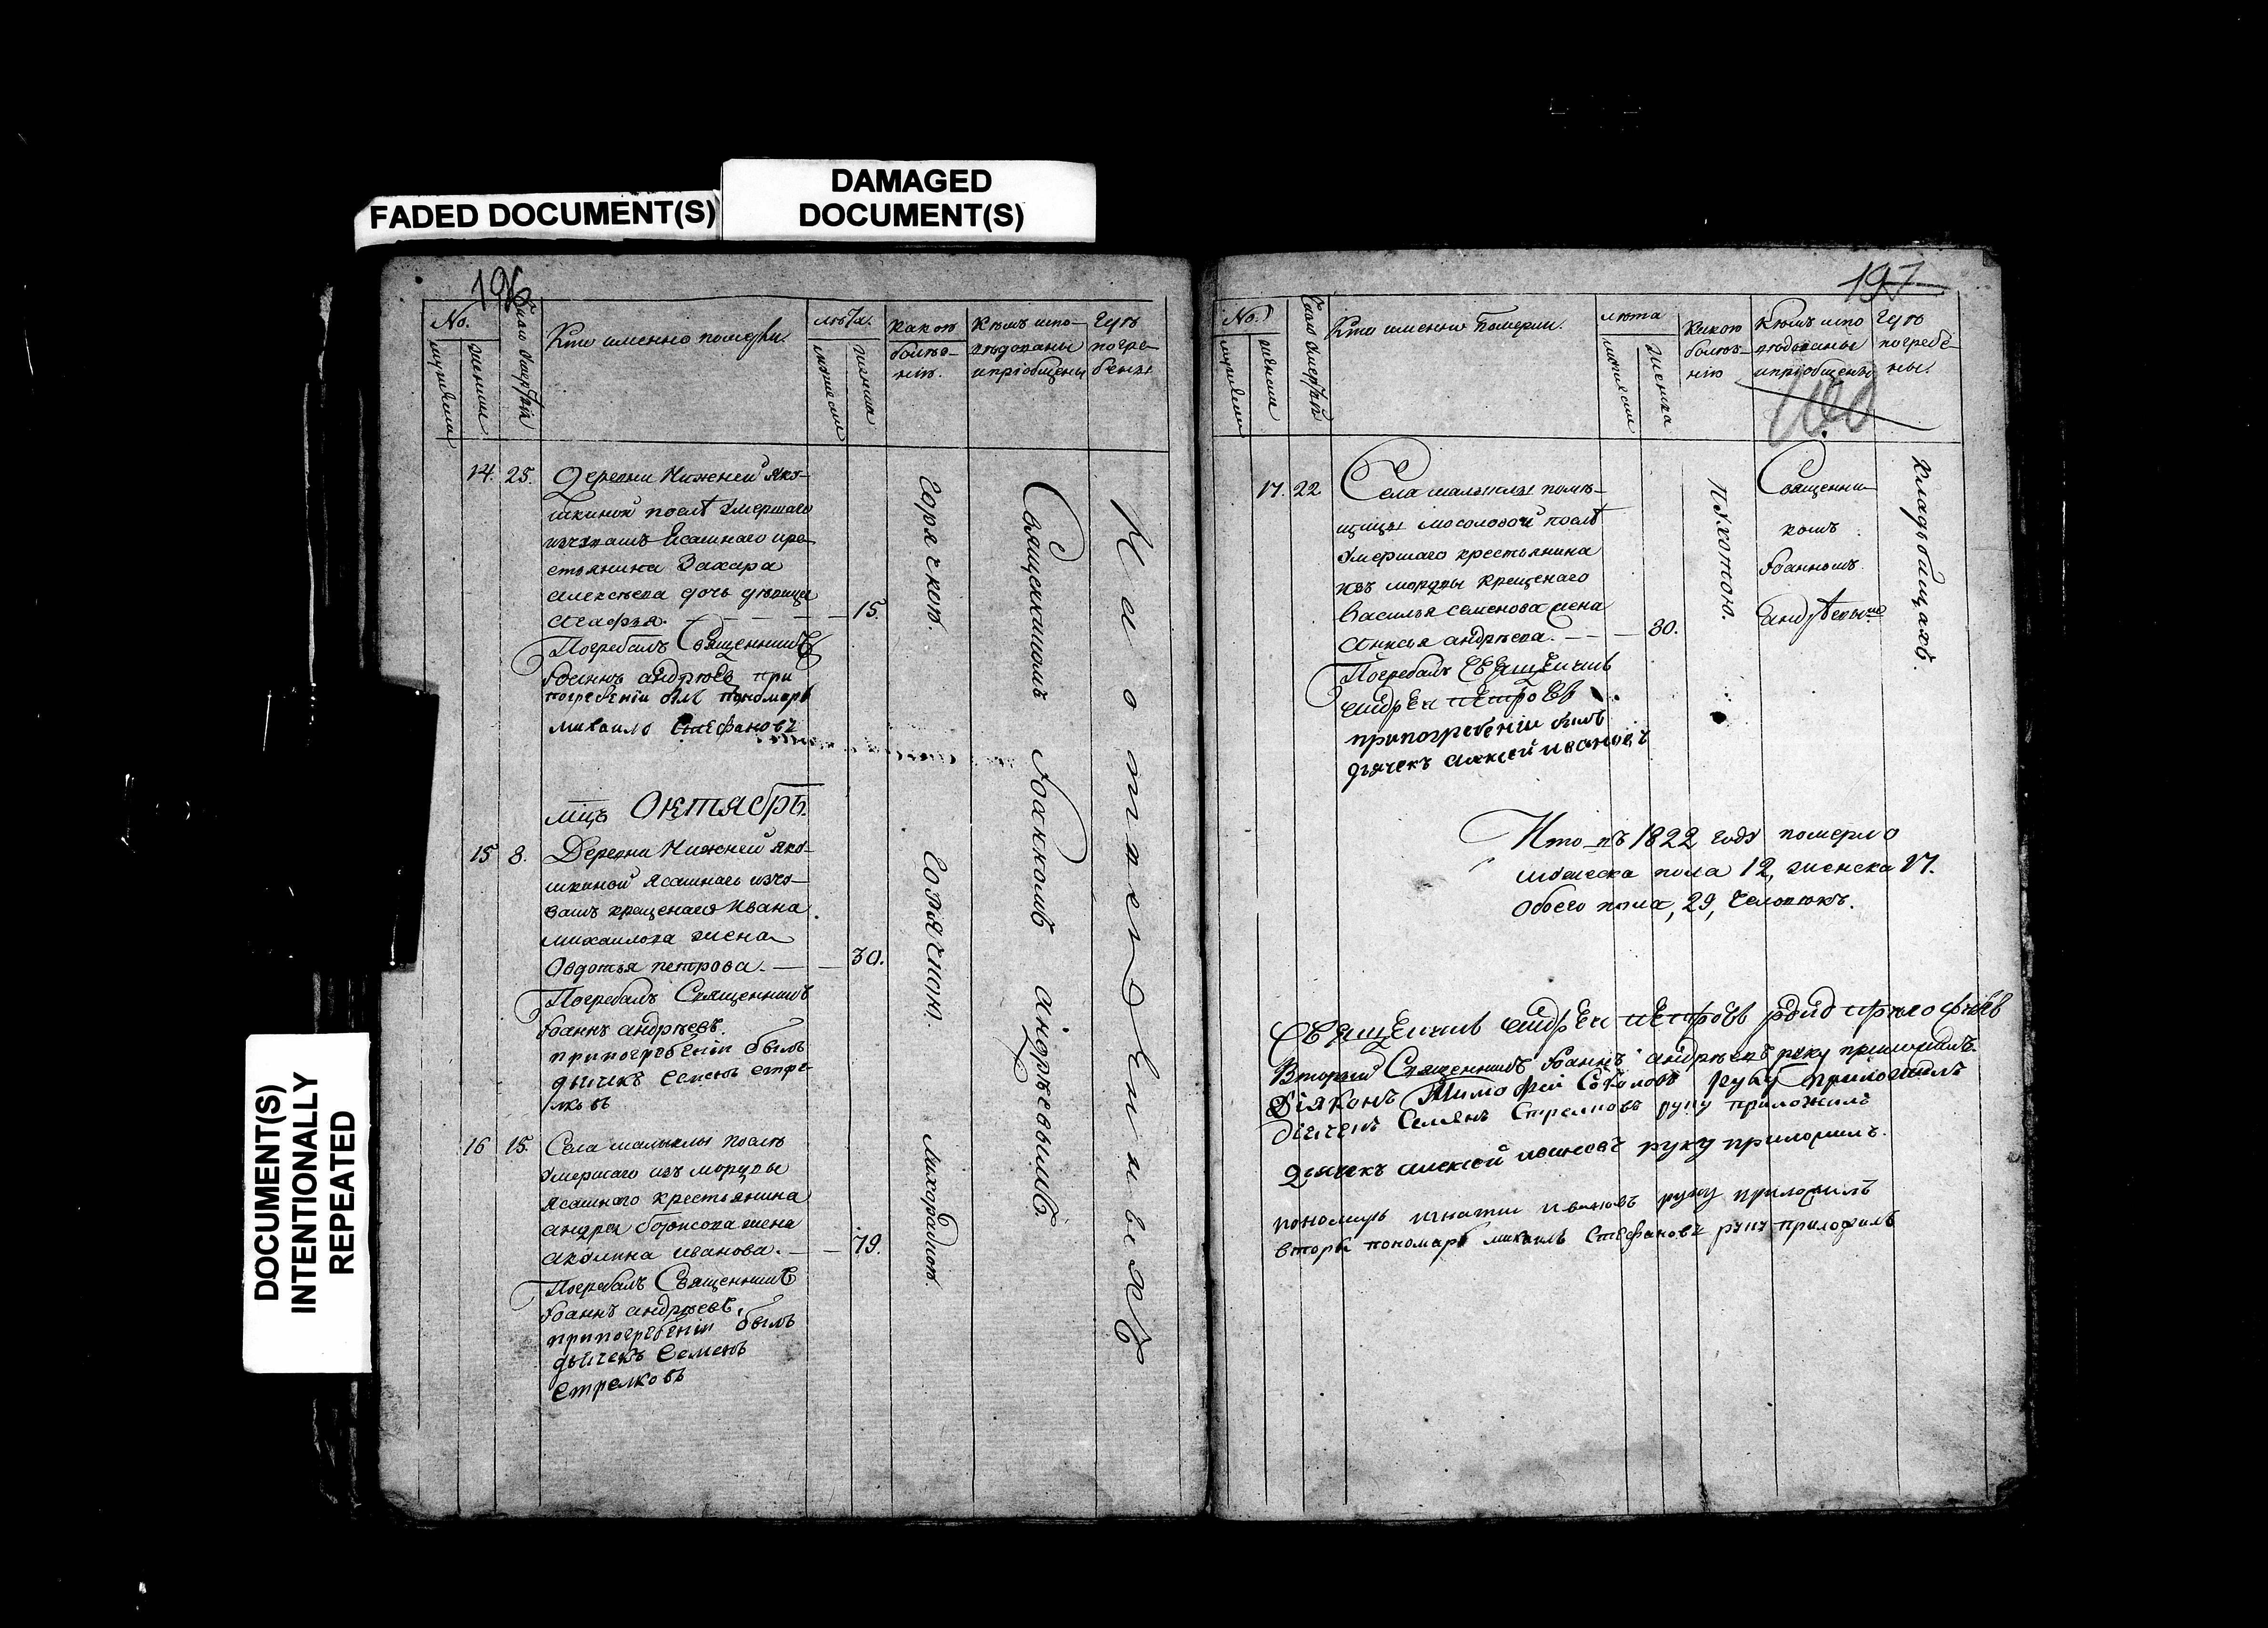 FADED DOCUMENT(S)
DAMAGED
DOCUMENT(S)
DOCUMENT(S)
INTENTIONALLY
REPEATED
196
No.
мужеска
женска
Число смертей
Кто именно померли.
лѣта.
мужеска
женска
Какою
болѣз-
нію.
Кѣмъ испо-
вѣдованы
и пріобщены
Гдѣ
погре-
бены
14. 25. Деревни Нижней Яку-
шкиной послѣ умершаго
изъ чувашъ Ясашнаго кре-
стьянина Захара
Алексѣева дочь дѣвица
Агафья. 15.
Погребалъ Священникъ
Іоаннъ Андрѣевъ при
погребеніи былъ пономарь
Михаилъ Стефановъ
Горячкою.
Священникомъ Іоанномъ Андрѣевымъ.
На отведенныхъ
мцъ Октябрь.
15 8. Деревни Нижней Яку-
шкиной Ясашнаго изъ чу-
вашъ крещенаго Ивана
Михаилова жена
Овдотья Петрова. 30.
Погребалъ Священникъ
Іоаннъ Андрѣевъ.
при погребеніи былъ
дьячекъ Семенъ Стре-
лковъ
Горячкою.
16 15. Села Малыклы послѣ
умершаго изъ мордвы
Ясашнаго крестьянина
Андрея Борисова жена
Акулина Иванова. 79.
Погребалъ Священникъ
Іоаннъ Андрѣевъ,
при погребеніи былъ
дьячекъ Семенъ
Стрелковъ
Лихорадкою.
197
No.
мужеска
женска
Число смертей
Кто именно померли.
лѣта
мужеска
женска
Какою
болѣз-
нію
Кѣмъ испо
вѣдованы
и пріобщены
Гдѣ
погребе-
ны.
17. 22 Села Малыклы помѣ-
щицы Мосоловой послѣ
умершаго крестьянина
изъ мордвы крещенаго
Василья Семенова жена
Анисья Андрѣева. 30.
Погребалъ Священникъ
Андрей Петровъ.
при погребеніи былъ
дьячекъ Алексей Ивановъ
Пѣхотою.
Священни
комъ
Іоанномъ
Андрѣевымъ
Кладбищахъ.
Итого въ 1822 году померло
мужеска пола 12, женска 17.
Обоего пола, 29, Человѣкъ.
Священникъ Андрей Петровъ руку приложилъ
Вторый Священникъ Іоаннъ Андрѣевъ руку приложилъ.
Діяконъ Тимофей Соколовъ руку приложилъ
дьячекъ Семенъ Стрелковъ руку приложилъ
дьячекъ Алексей Ивановъ руку приложилъ.
пономарь Игнатий Ивановъ руку приложилъ
вторы пономарь Михаилъ Стефановъ руку приложилъ